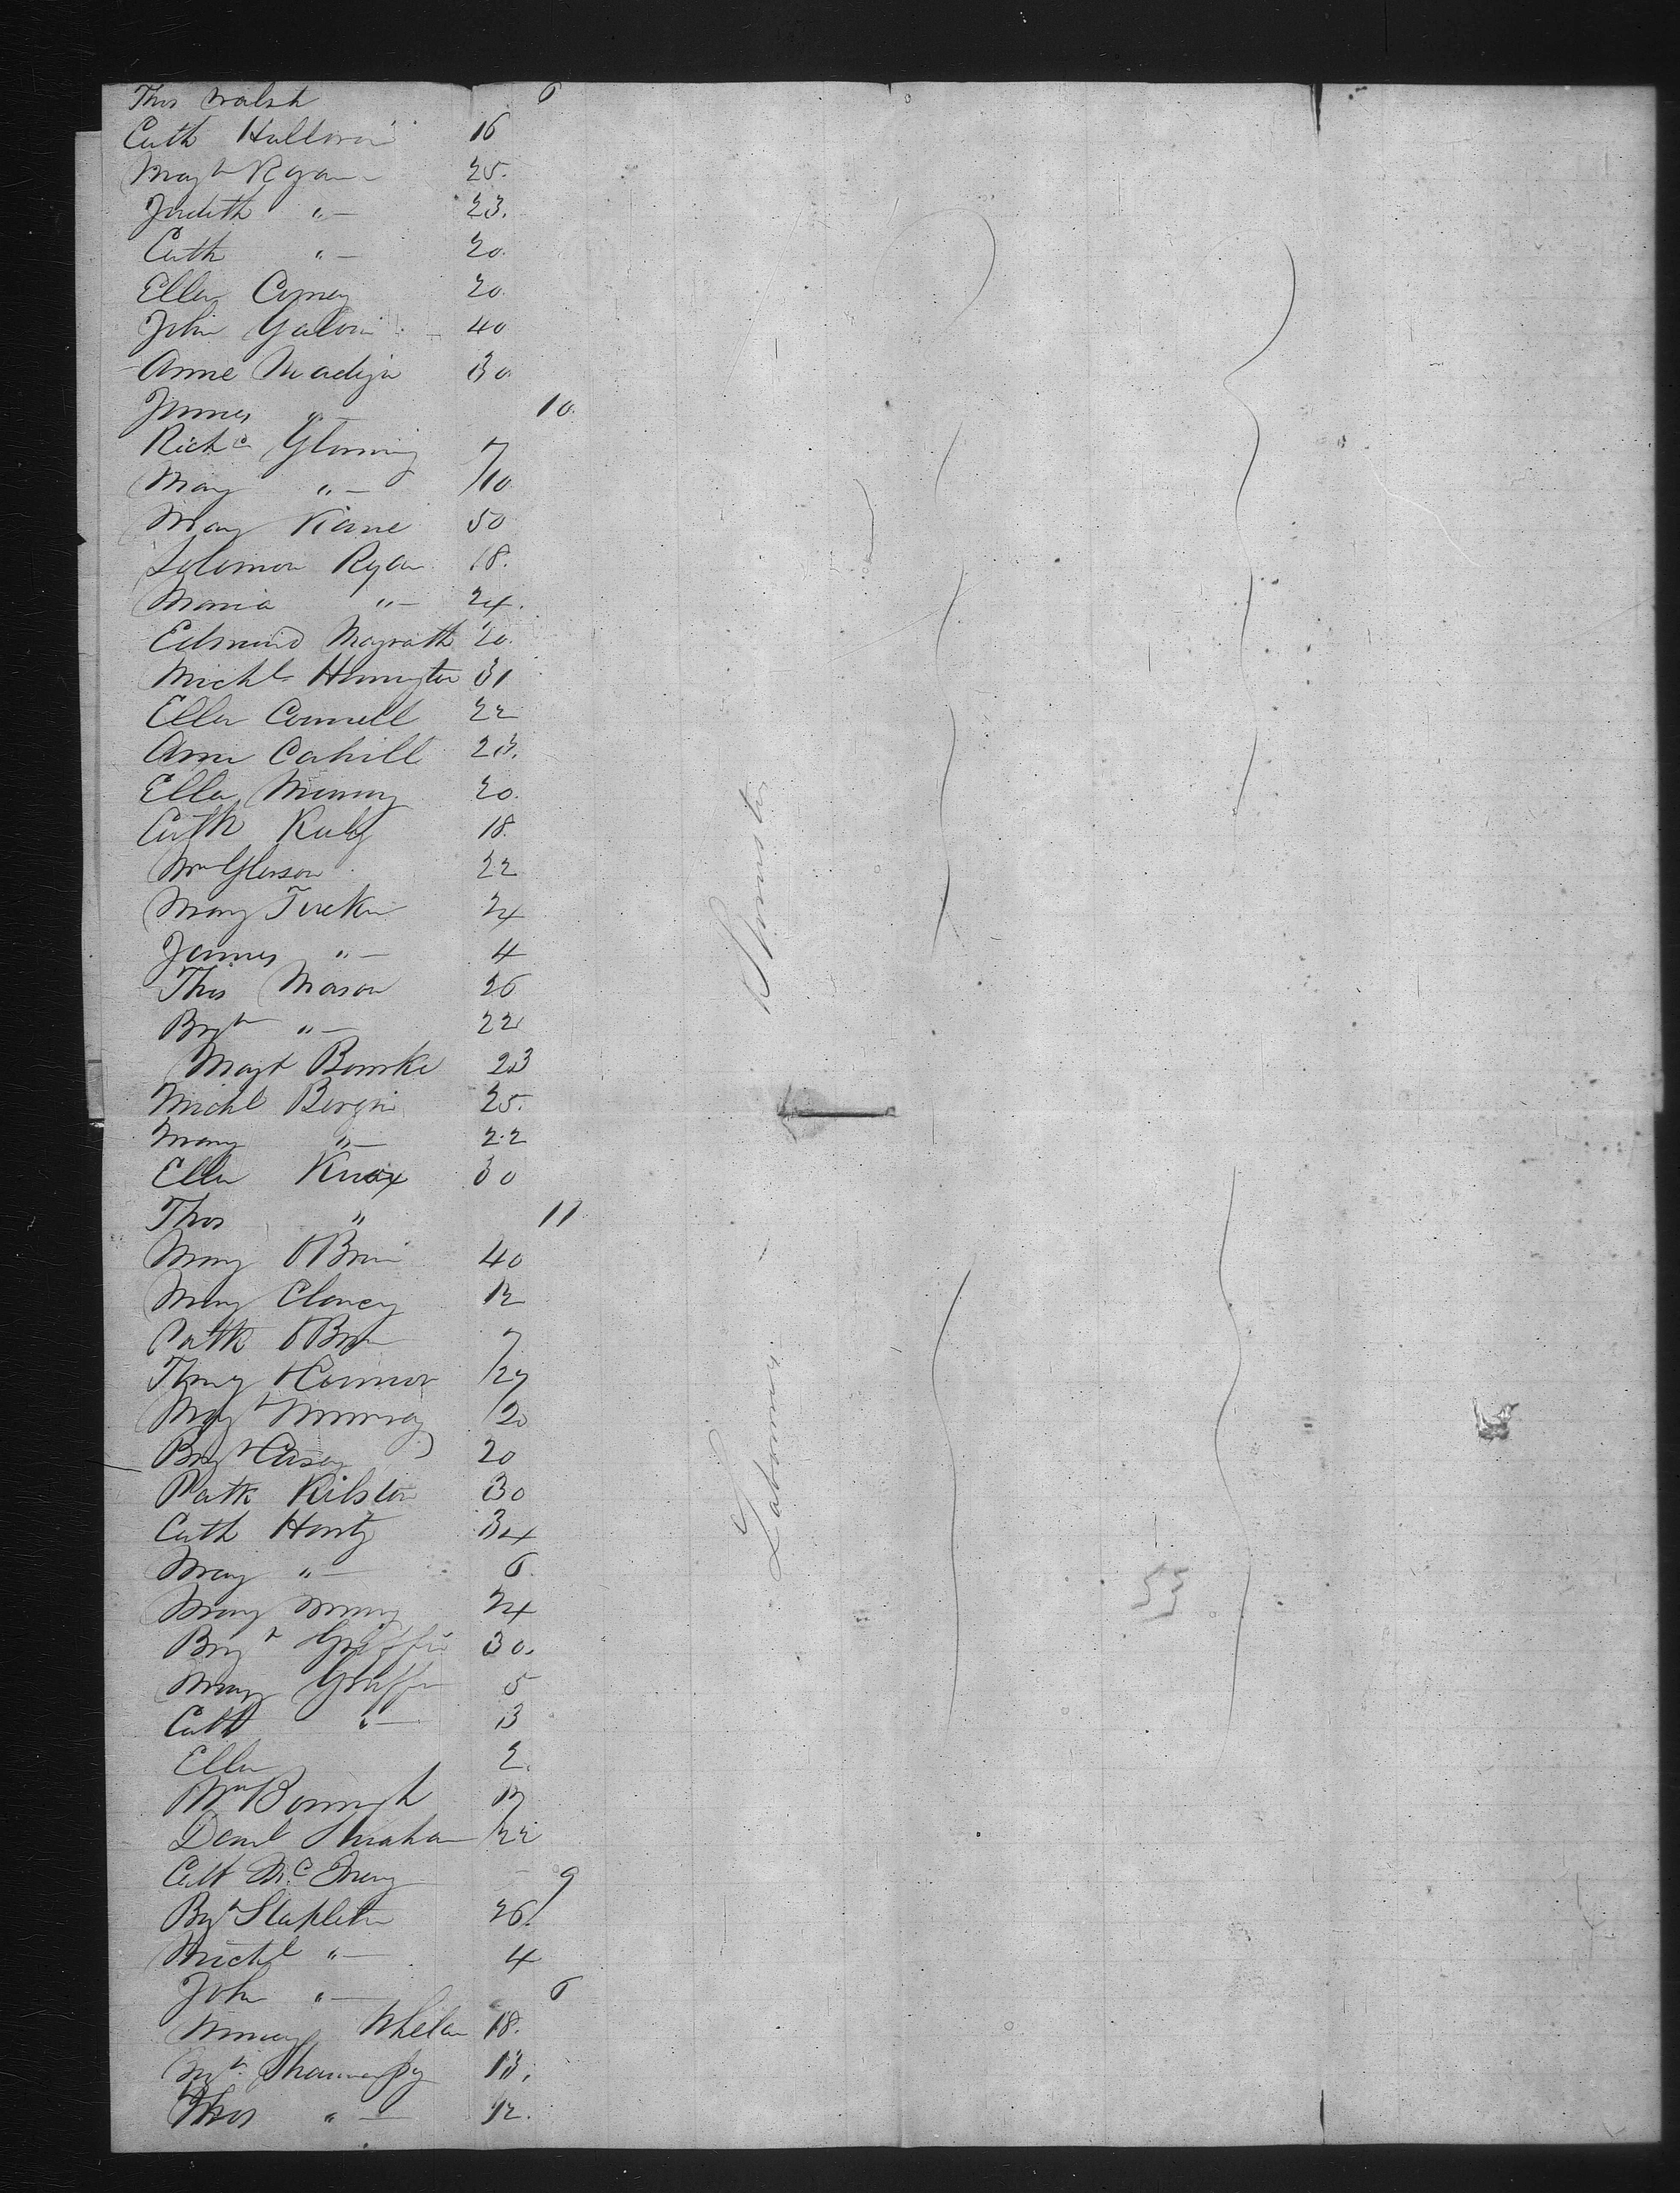 Thos Walsh 6
Cath Halloran 16
Magt Ryan 25.
Judith "— 23.
Cath "— 20.
Ellen 20.
John Galvin 40
Anne Madigan 30
James "— 10.
Richd 7
Mary "— 10
Mary Kane 50
Solomon Ryan 18.
Maria "— 24.
Edmund Magrath 20.
Michl 31
Ellen Connell 22
Ann Cahill 23.
Ellen 20.
Cath 18.
Wm Gleeson 22
Mary 24
James "— 4
Thos Mason 26
Bgt "— 22
Magt Bourke 23
Michl Bergin 25.
Mary "— 22
Ellen Knox 30
Thos " 11
Mary OBrien 40
Mary Clancy 12
Patk OBrien 7
Connor 27
Magt Murray 20
Bgt Casey 20
Patk 30
Cath 34
Mary "— 6.
Mary 24
Bgt Griffin 30.
Mary Griffin 5
Cath "— 3
Ellen 2.
Wm 17
Danl 22
Cath 9
Bgt Stapleton 26
Michl "— 4
John "— 6
Whelan 18.
Shanaghy 13.
Thos "— 12.
Spinsters
Labourers
53